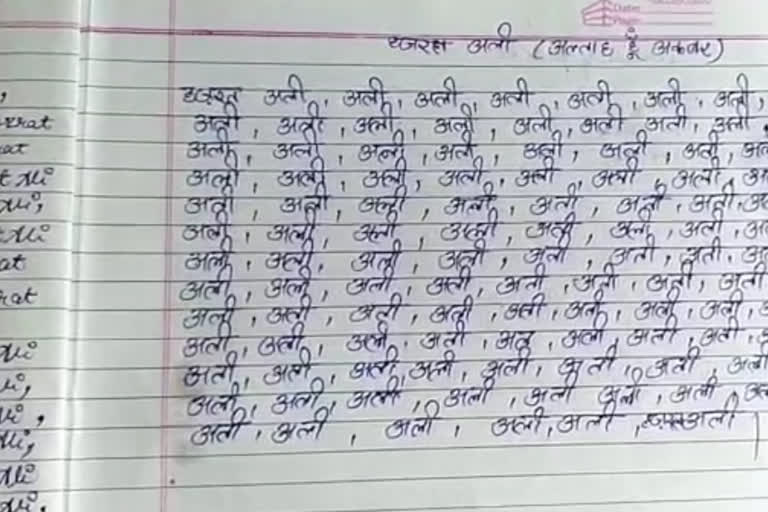 हजरत अली (अल्लाह हूँ अकबर)
हजरत अली, अली, अली, अली, अली, अली, अली,
अली, अली, अली, अली, अली, अली अली, अली
अली, अली, अली, अली, अली, अली, अली,
अली, अली, अली, अली, अली, अली, अली,
अली, अली, अली, अली, अली, अली, अली,
अली, अली, अली, अली, अली, अली, अली,
अली, अली, अली, अली, अली, अली, अली,
अली, अली, अली, अली, अली, अली, अली, अली
अली, अली, अली, अली, अली, अली, अली, अली,
अली, अली, अली, अली, अली, अली, अली, अली,
अली, अली, अली, अली, अली, अली, अली, अली
अली, अली, अली, अली, अली अली, अली
अली, अली, अली, अली, अली, हजरत अली |